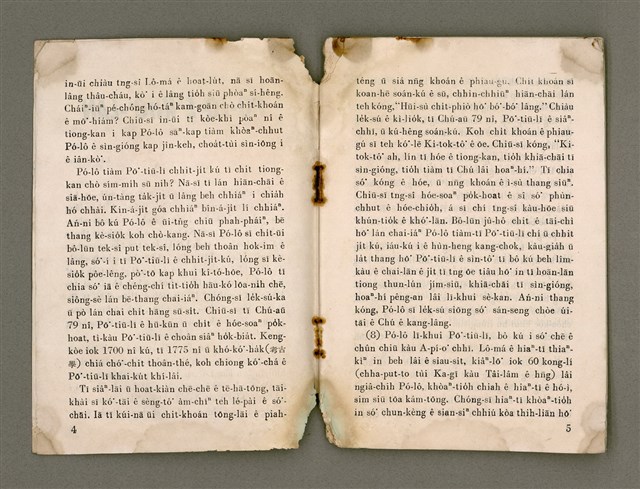 in-ūi chiàu tng-sî Lô-má ê hoat-lu̍t, nā sī hoān-
lâng thâu-cháu, kò͘ i ê lâng tio̍h siū phòaⁿ sí-hêng.
Cháiⁿ-iūⁿ pé-chóng hó-táⁿ kam-goān chò chit-khoán
ê mō͘-hiám? Chiū-sī in-ūi tī kòe-khì pòaⁿ nî ê
tiong-kan i kap Pó-lô saⁿ-kap tiàm khòaⁿ-chhut
Pó-lô ê sìn-gióng kap jîn-keh, choát-tùi sìn-iōng i
ê iân-kò͘.
Pó-lô tiàm Pō͘-tiu-lī chhit-jít kú tī chit tiong-
kan chò sím-mih sū nih? Nā-sī tī lán hiān-chāi ê
siā-hōe, ún-tàng tak-ji̍t ū lâng beh chhiáⁿ i chia̍h
hó chhài. Kin-á-ji̍t góa chhiáⁿ bîn-á-ji̍t lí chhiáⁿ.
Án-ni bô kú Pó-lô ê ūi-tn̂g chiū phah-pháiⁿ, bē
thang kè-sio̍k koh chò-kang. Nā-sī Pó-lô sī chit-ūi
bô-lūn tek-sî put tek-sî, lóng beh thoân hok-im ê
lâng, só͘-í i tī Pō͘-tiu-lī ê chhit-ji̍t-kú, lóng sī kè-
sio̍k pōe-lêng, pò͘-tō kap khui kî-tō-hōe, Pó-lô tī
chia só͘ iā ê chéng-chí tit-tio̍h hāu-kó lōa-nih chē,
siông-sè lán bē-thang chai-iáⁿ. Chóng-sī le̍k-sú-ka
ū pò lán chai chit hāng sū-sit. Chiū-sī tī Chú-aū
79 nî, Pō͘-tiu-lī ê hū-kūn ū chit ê hóe-soaⁿ po̍k-
hoat, tì-kàu Pō͘-tiu-lī ê choân siâⁿ bo̍k-bia̍t. Keng-
kòe iok 1700 nî kú, tī 1775 nî ū khó-kó͘-ha̍k(考古
學) chiá chó͘-chit thoân-thé, koh chiong kó͘-chá ê
Pō͘-tiu-lī khai-kut khí-lâi.
Tī siâⁿ-lāi ū hoat-kiàn chē-chē ê tē-hā-tông, tāi-
khài sī kó͘-tāi ê sèng-tô͘ àm-chīⁿ teh lé-pài ê só͘-
chāi. Iā tī kúi-nā ūi chit-khoán tông-lāi ê piah-
4
téng ū siá nn̄g khoán ê phiau-gú. Chit khoán sī
koan-hē soán-kú ê sū, chhin-chhiūⁿ hiān-chāi lán
teh kóng, "Hūi-sú chit-phiò hō͘ bó͘-bó͘ lâng." Chiàu
le̍k-sú ê kì-lio̍k, tī Chú-aū 79 nî, Pō͘-tiu-lī ê siâⁿ-
chhī, ū kú-hêng soán-kú. Koh chit khoán ê phiau-
gú sī teh kó͘-lē Ki-tok-tô͘ ê ōe. Chiū-sī kóng, "Ki-
tok-tô͘ ah, lín tī hóe ê tiong-kan, tio̍h khiā-chāi tī
sìn-gióng, tio̍h tiàm tī Chú lâi hoaⁿ-hí." Tī chia
só͘ kóng ê hóe, ū nn̄g khoán ê ì-sù thang siūⁿ.
Chiū-sī tng-sî hóe-soaⁿ po̍k-hoat ê sî só͘ phùn-
chhut ê hóe-chio̍h, á sī chí tng-sî kàu-hōe siū
khún-tio̍k ê khó͘-lān. Bô-lūn jû-hô chit ê tāi-chì
hō͘ lán chai-iáⁿ Pó-lô tiàm-tī Pō͘-tiu-lī chí ū chhit
ji̍t kú, iáu-kú i ê hún-heng kang-chok, káu-giáh ū
la̍t thang hō͘ Pō͘-tiu-lī ê sìn-tô͘ tī bô kú beh lîm-
kàu ê chai-lān ê ji̍t tī tng ōe tiâu hō͘ in tī hoān-lān
tiong thun-lún jím-siū, khiā-chāi tī sìn-gióng,
hoaⁿ-hí pêng-an lâi lī-khui sè-kan. Án-ni thang
kóng, Pó-lô sī le̍k-sú siōng só͘ sán-seng chòe ūi-
tāi ê Chú ê kang-lâng.
(8) Pó-lô lī-khui Pō͘-tiu-lī, bô kú i só͘ chē ê
chûn chiū kàu A-pí-oⁿ chhī. Lô-má ê hiaⁿ-tī thiaⁿ-
kìⁿ in beh lâi ê siau-sit, kiâⁿ-lō͘ iok 60 kong-lí
(chha-put-to tùi Ka-gī kàu Tâi-lâm ê hn̄g) lâi
ngiâ-chih Pó-lô, khòaⁿ-tio̍h chiah ê hiaⁿ-tī ê hó-ì,
sim siū tōa kám-tōng. Chóng-sī hiaⁿ-tī khòaⁿ-tio̍h
in só͘ chun-kèng ê sian-siⁿ chhiú kòa thih-liān hō͘
5